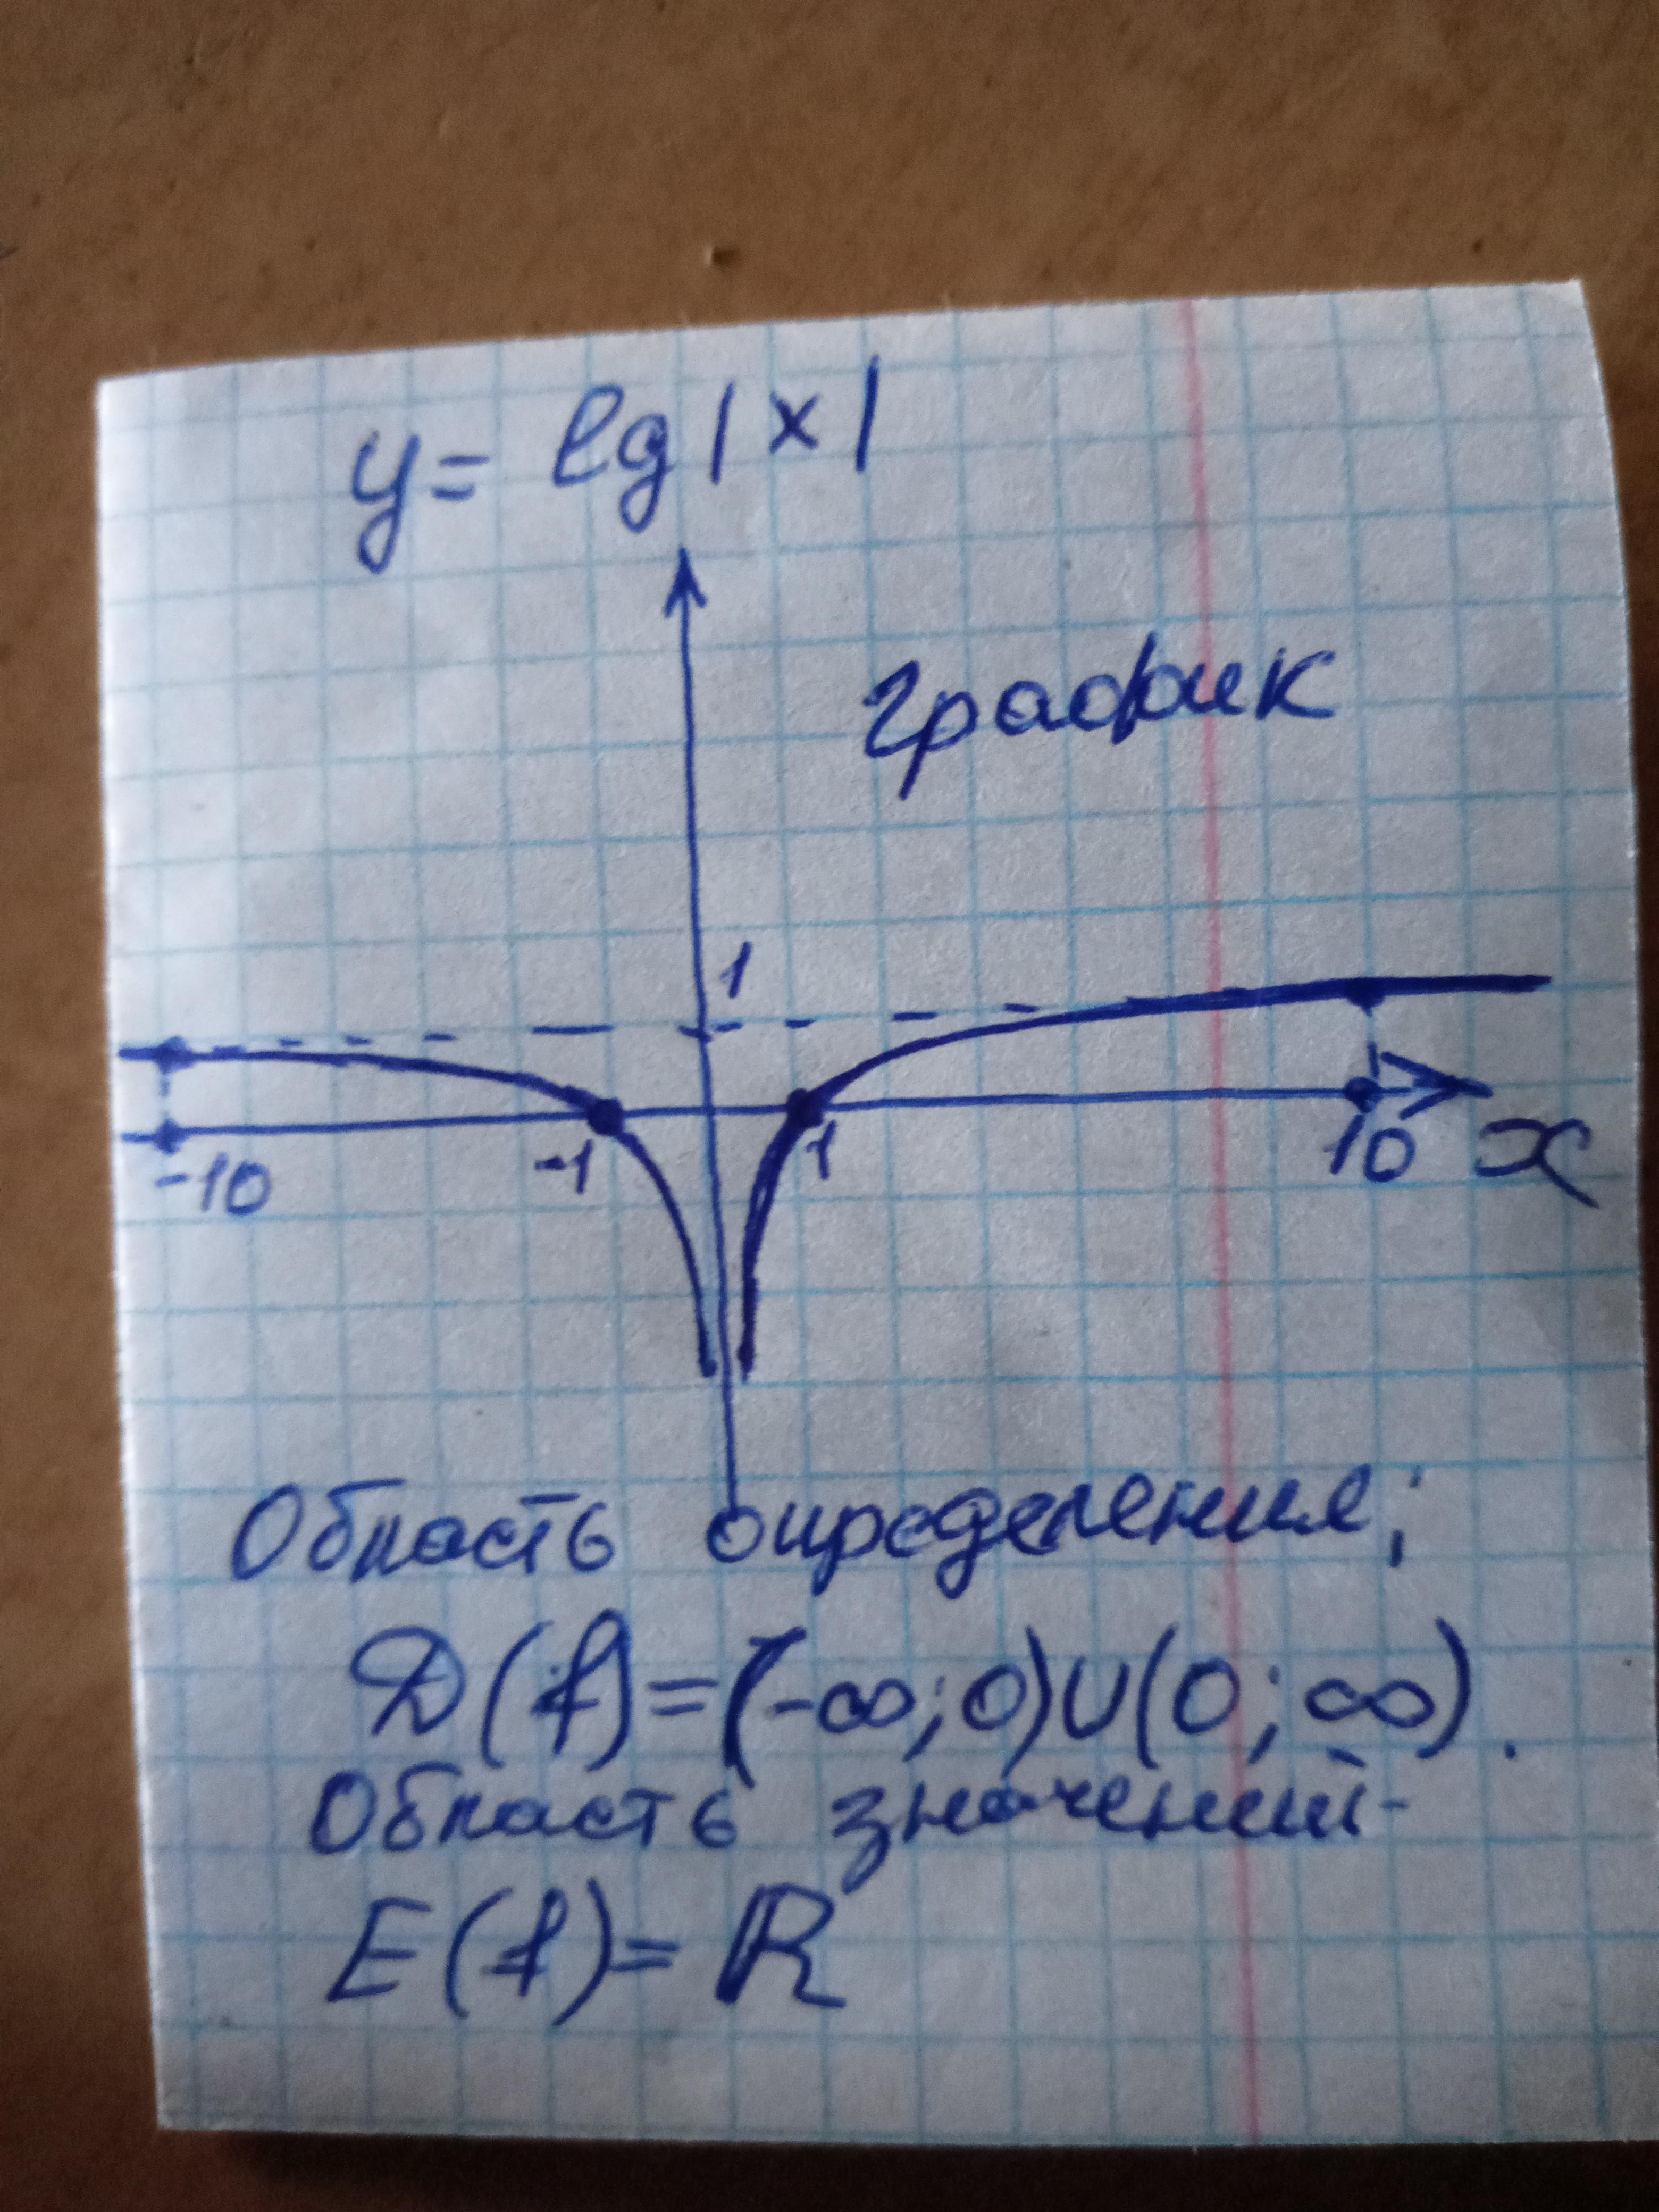 y = lg |x|
график
1
-10 -1 1 10 x
Область определения;
D(f)=(-∞;0)∪(0;∞).
Область значений-
E(f)=ℝ